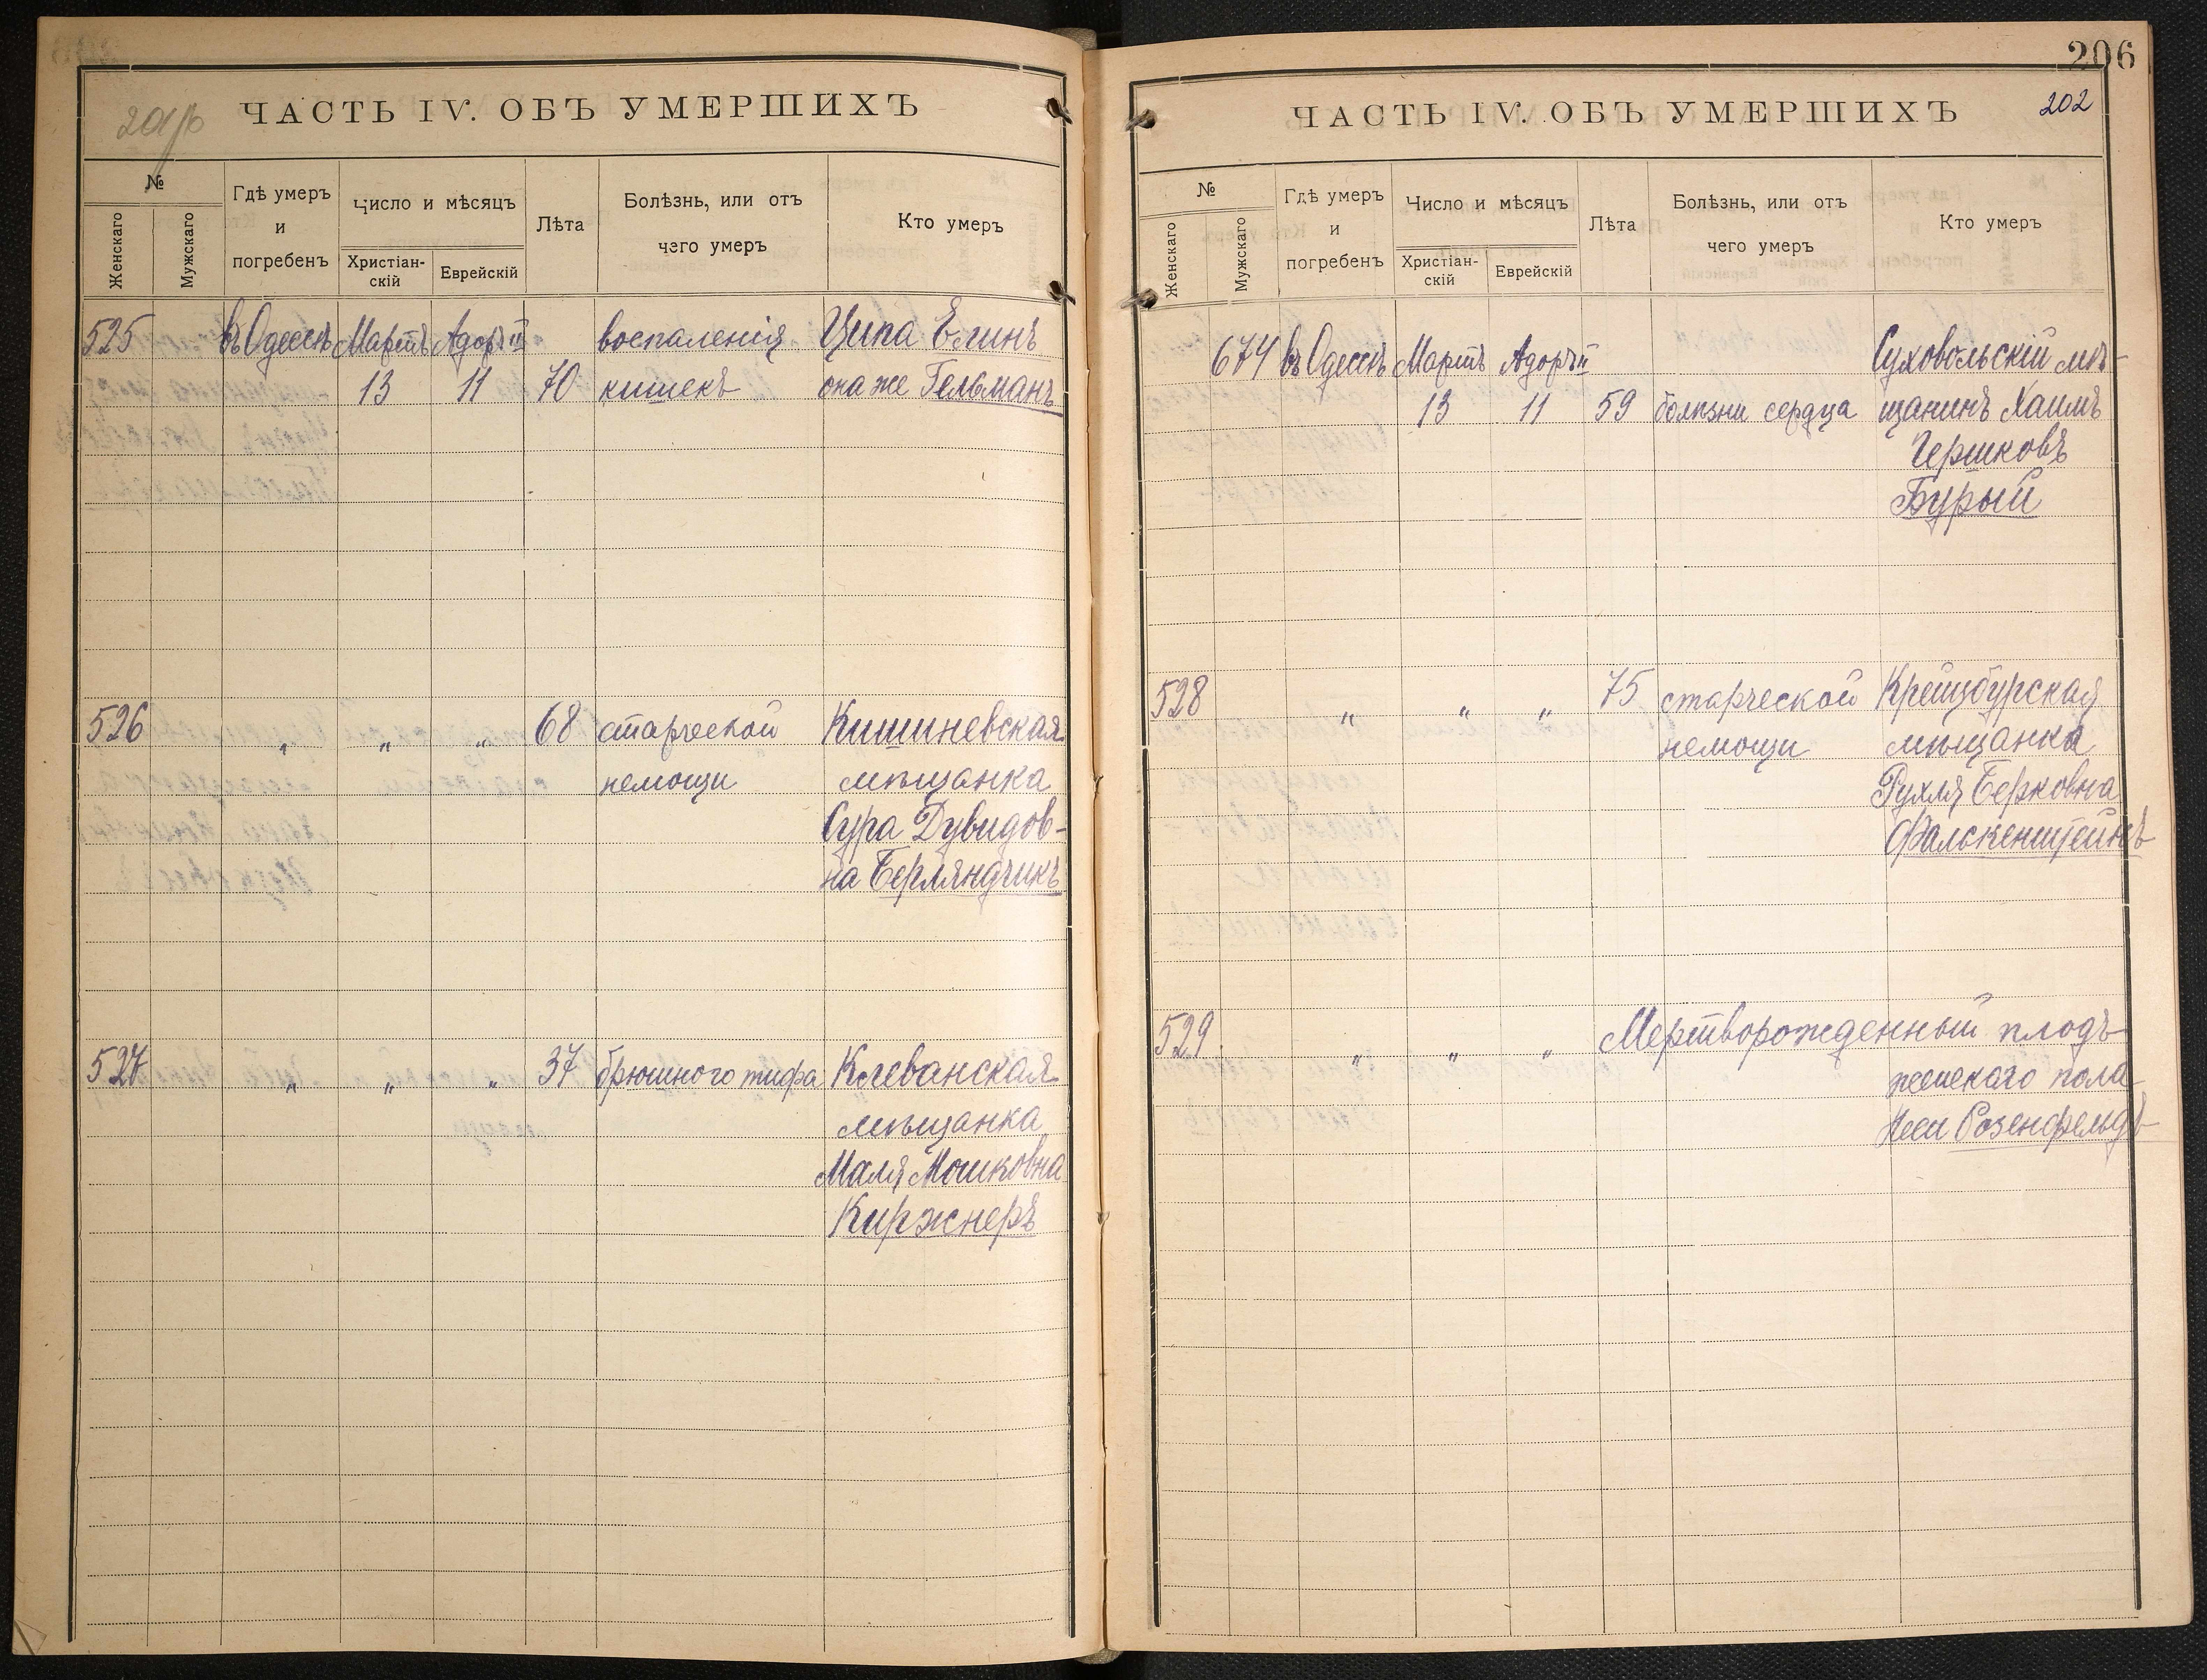 ЧАСТЬ IV. ОБЪ УМЕРШИХЪ
№
Женскаго
Мужскаго
Гдѣ умеръ
и
погребенъ
Число и мѣсяцъ
Христіан-
скій
Еврейскій
Лѣта
Болѣзнь, или отъ
чего умеръ
Кто умеръ
525 въ Одессѣ Мартъ Адоръ II воспаленія Ципа Елинъ
13 11 70 кишекъ она же Гельманъ
526 „ „ „ 68 старческой Кишиневская
немощи мѣщанка
Сура Дувидов-
на Берляндчикъ
527 „ „ „ 37 брюшного тифа Клеванская
мѣщанка
Маля Мошковна
Киржнеръ
206
ЧАСТЬ IV. ОБЪ УМЕРШИХЪ 202
№
Женскаго
Мужскаго
Гдѣ умеръ
и
погребенъ
Число и мѣсяцъ
Христіан-
скій
Еврейскій
Лѣта
Болѣзнь, или отъ
чего умеръ
Кто умеръ
674 въ Одессѣ Мартъ Адоръ II Суховольскій мѣ-
13 11 59 болѣзни сердца щанинъ Хаимъ
Гершковъ
Бурый
528 „ „ „ 75 старческой Крейцбурская
немощи мѣщанка
Рухля Берковна
Фалькенштейнъ
529 „ „ „ Мертворожденный плодъ
женскаго пола
Неси Розенфельдъ